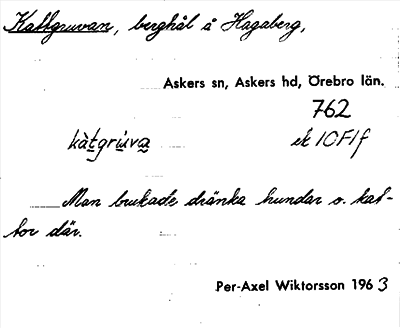 Kattgruvan, berghål å Hagaberg,
Askers sn, Askers hd, Örebro län.
762
kàtgrùva ek 10F1f
Man brukade dränka hundar o. kat-
tor där.
Per-Axel Wiktorsson 1963